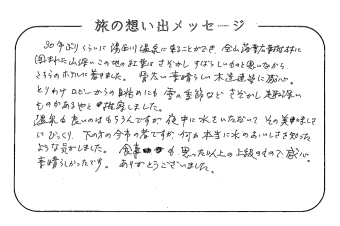 旅の想い出メッセージ
30年ぶりくらいに湯西川温泉に来ることができ、
囲まれた山深いこの地の紅葉はさぞかしすばらしいものと思いながら、
こちらのホテルに着きました。 素晴らしい木造建築に感心。
とりわけロビーからの眺めにも雪の季節などさぞかし
ものがあるやと推察しました。
温泉も良いのはもちろんですが、夜中に水をいただいてその美味しさ
にびっくり。下の方の今市の者ですが、何か本当に水のおいしさを知った
ような気がしました。食事も思った以上の上級のもので、感心。
素晴らしかったです。ありがとうございました。